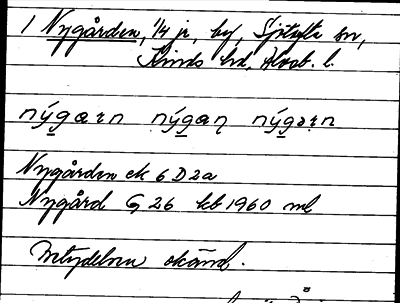 1 Nygården, 1/4 jr, by, Sjötofta sn,
Kinds hd, Älvsb. l.
nýgærn nýgaṇ nýgərn
Nygården ek 6 D 2a
Nygård G 26 kb 1960 ml
Betydelsen okänd.